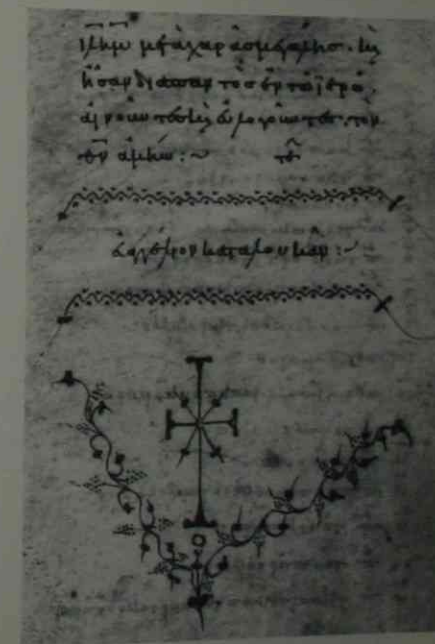 ἱλῆμ μετὰ χαρᾶς μεγάλης· καὶ
ἦσαν διαπαντὸς ἐν τῶ ἱερῶ,
αἰνοῦντες καὶ εὐλογοῦντες τὸν
θν ἀμήν :~ τε
εὐαγγέλιον κατὰ λουκᾶν :~